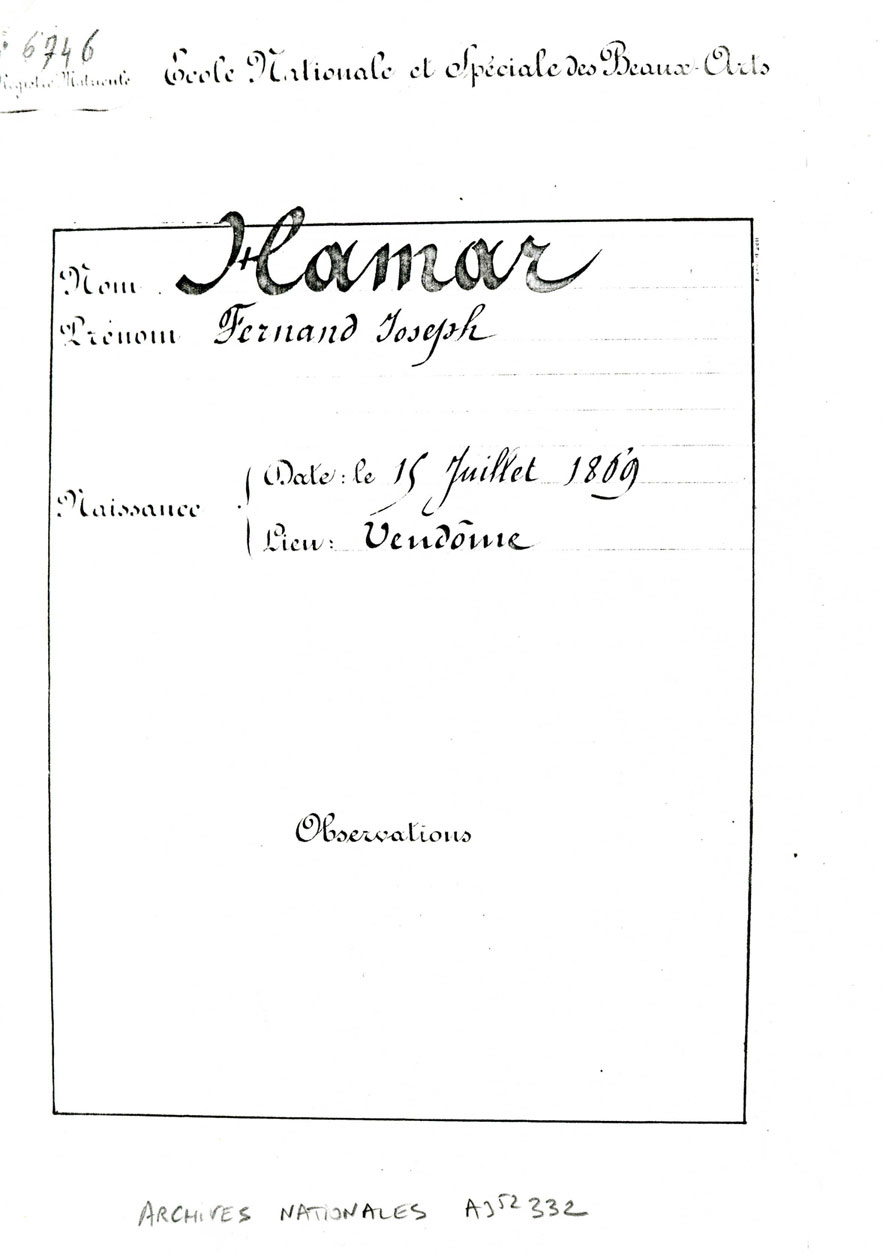 6746
Registre Matricule
École Nationale et Spéciale des Beaux-Arts
Nom . Hamar
Prénom Fernand Joseph
Naissance
Date : le 15 Juillet 1869
Lieu : Vendôme
Observations
ARCHIVES NATIONALES AJ52 332